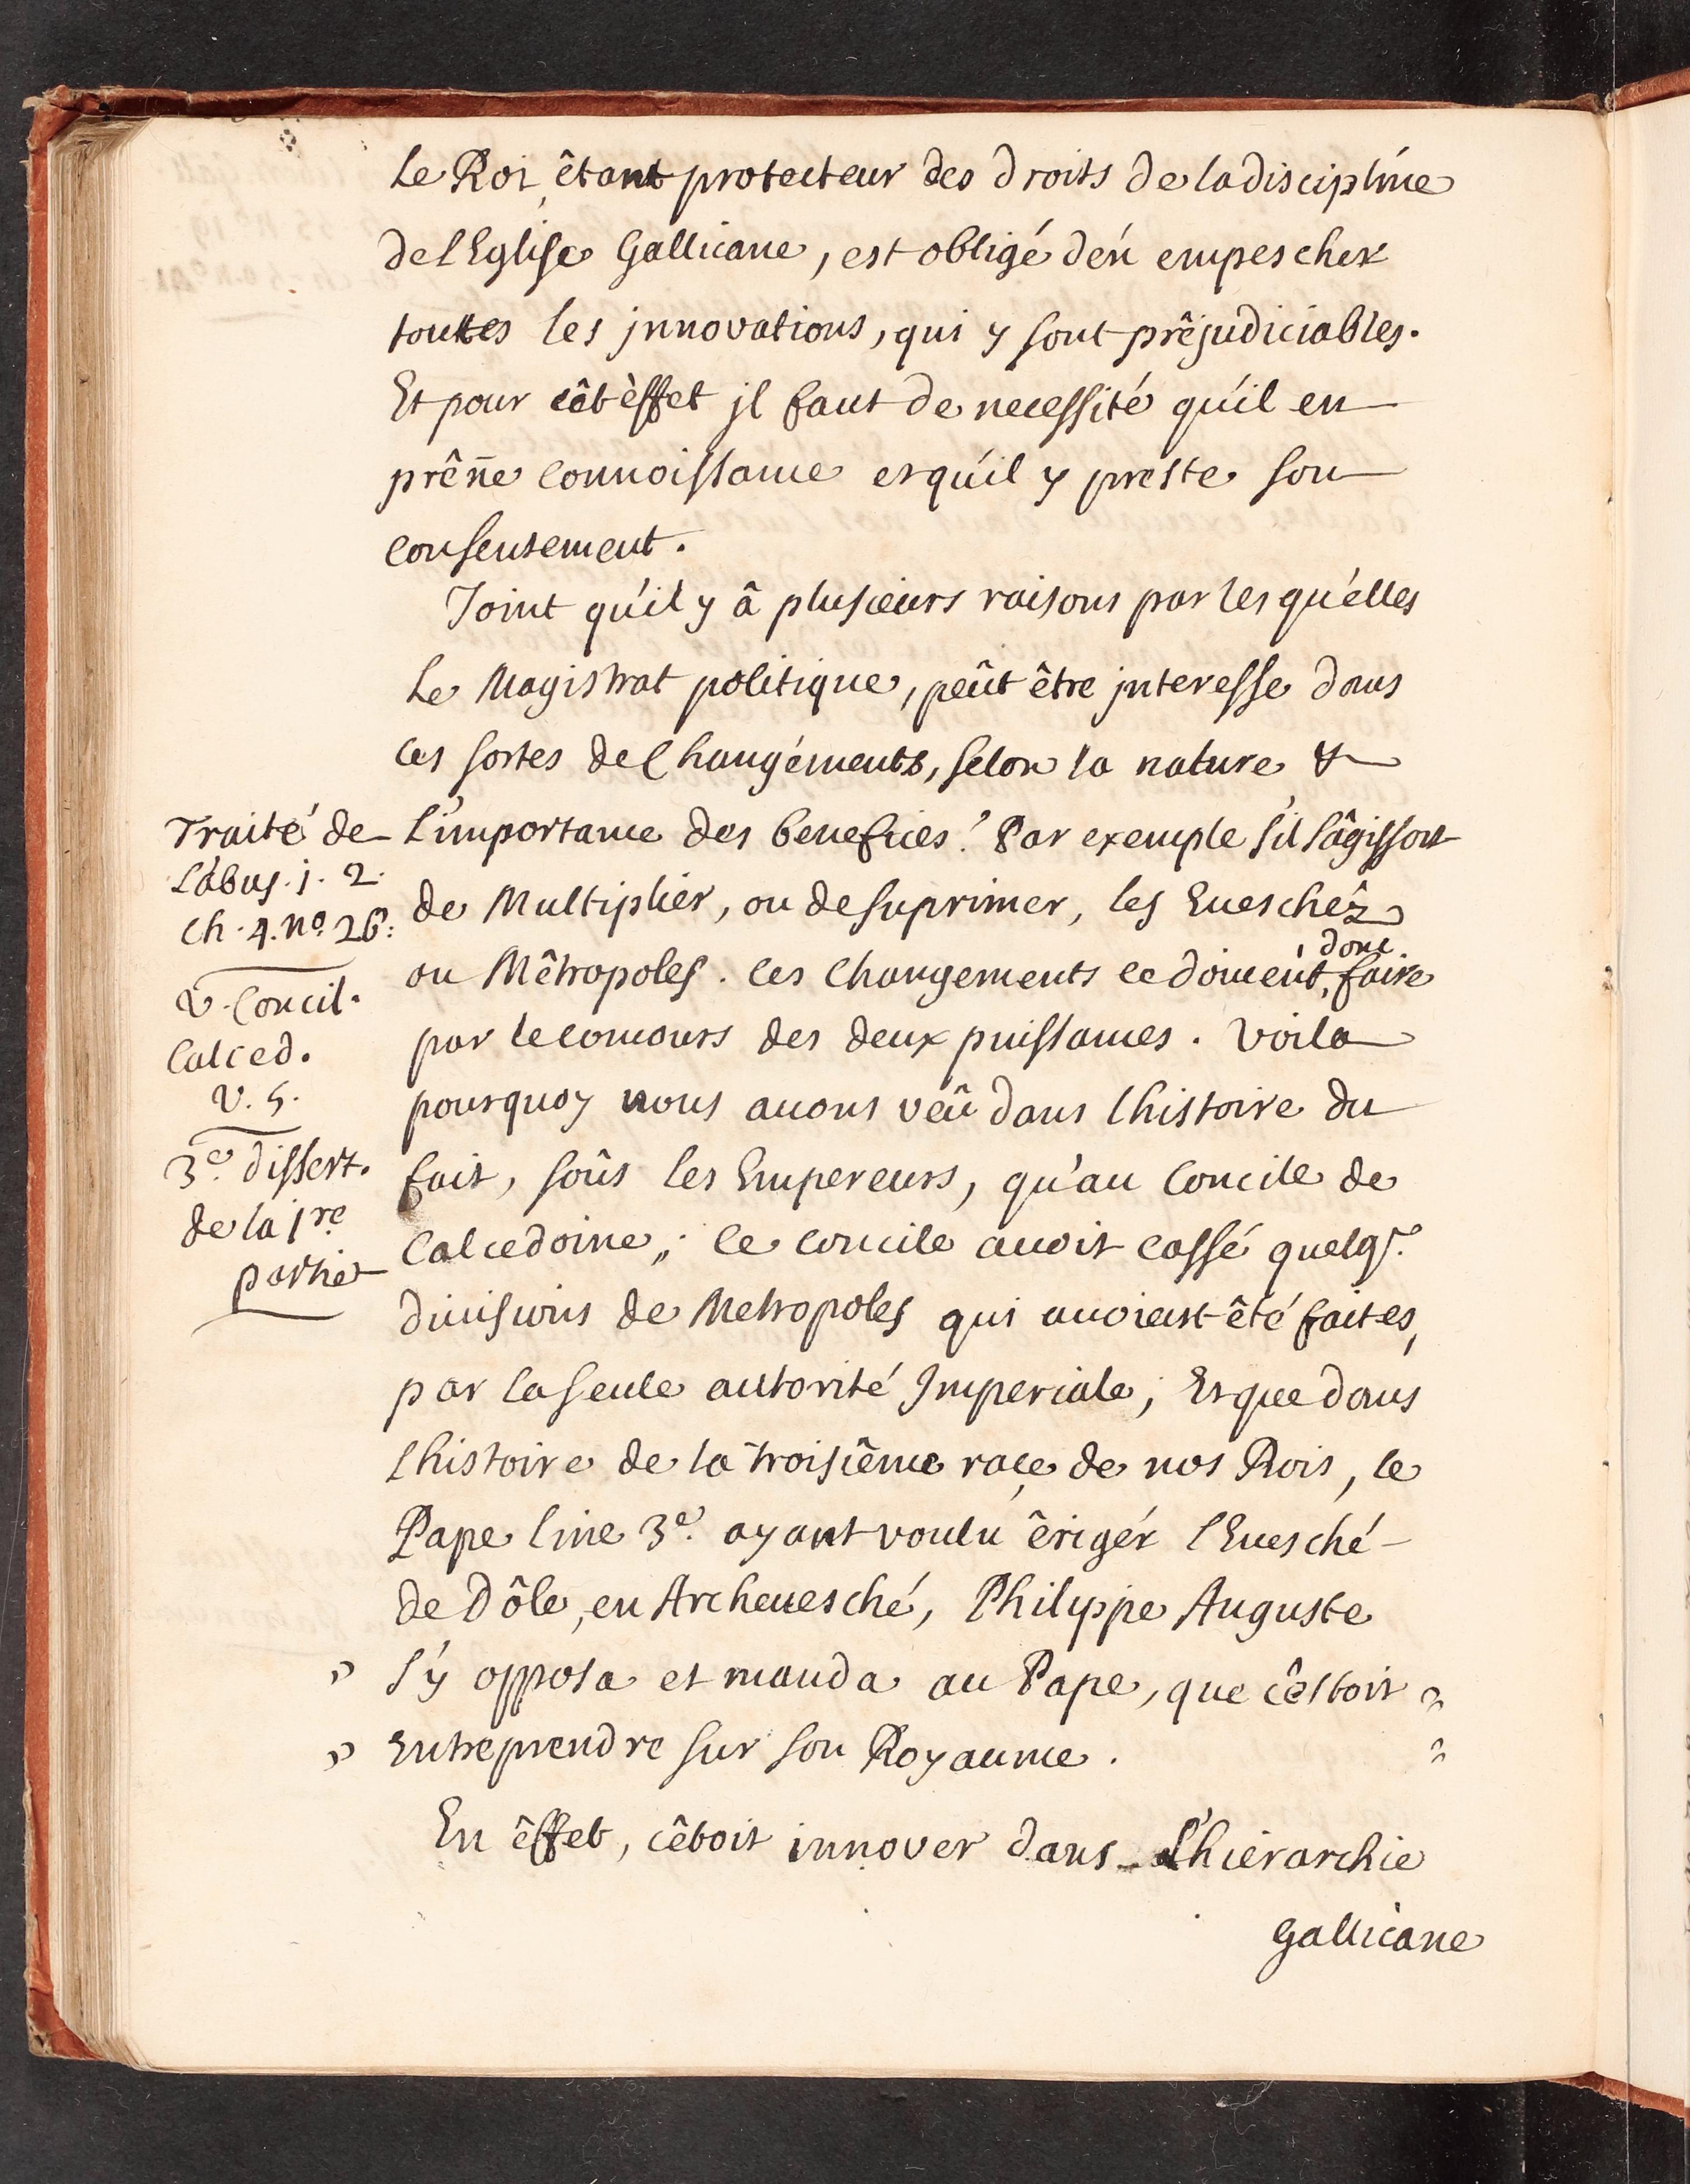 Le Roi, êtant protecteur des droits de la discipline
de l'Eglise Gallicane, est obligé d'en empescher
touttes les jnnovations, qui y sont prêjudiciables.
Et pour cêt èffet jl faut de necessité qu'il en
prêñe connoissance et qu'il y preste son
consentement.
Joint qu'il y â plusieurs raisons par lesqu'elles
Le Magistrat politique, peût être jnteresse dans
ces sortes de Changéments, selon la nature &
L'importance des benefices. Par exemple s'il s'âgissoit
de Multiplier, ou de suprimer, les Eueschêz
ou Mêtropoles. Ces Changements ce doiuent, donc faire
par le concours des deux puissances. Voila
pourquoy nous auons veû dans l'histoire du
fait, soûs les Empereurs, qu'au Concile de
Calcedoine, ce concile auoit cassé quelqs.
diuisions de Metropoles qui auoient êté faites,
par la seule autorité Jmperiale; Et que dans
l'histoire de la troisiême race de nos Rois, le
Pape Luce 3e. ayant voulu êrigér l'Euesché
de Dôle, en Archeuesché, Philippe Auguste
" s'y opposa et manda au Pape, que c'êstoit "
" Entreprendre sur son Royaume. "
En êffet, c'êtoit innover dans L'hiérarchie
Gallicane
Traité de
L'abus. j. 2.
Ch. 4. no. 26.
V. Concil.
Calced.
V. S.
3e. dissert.
de la 1re
partie